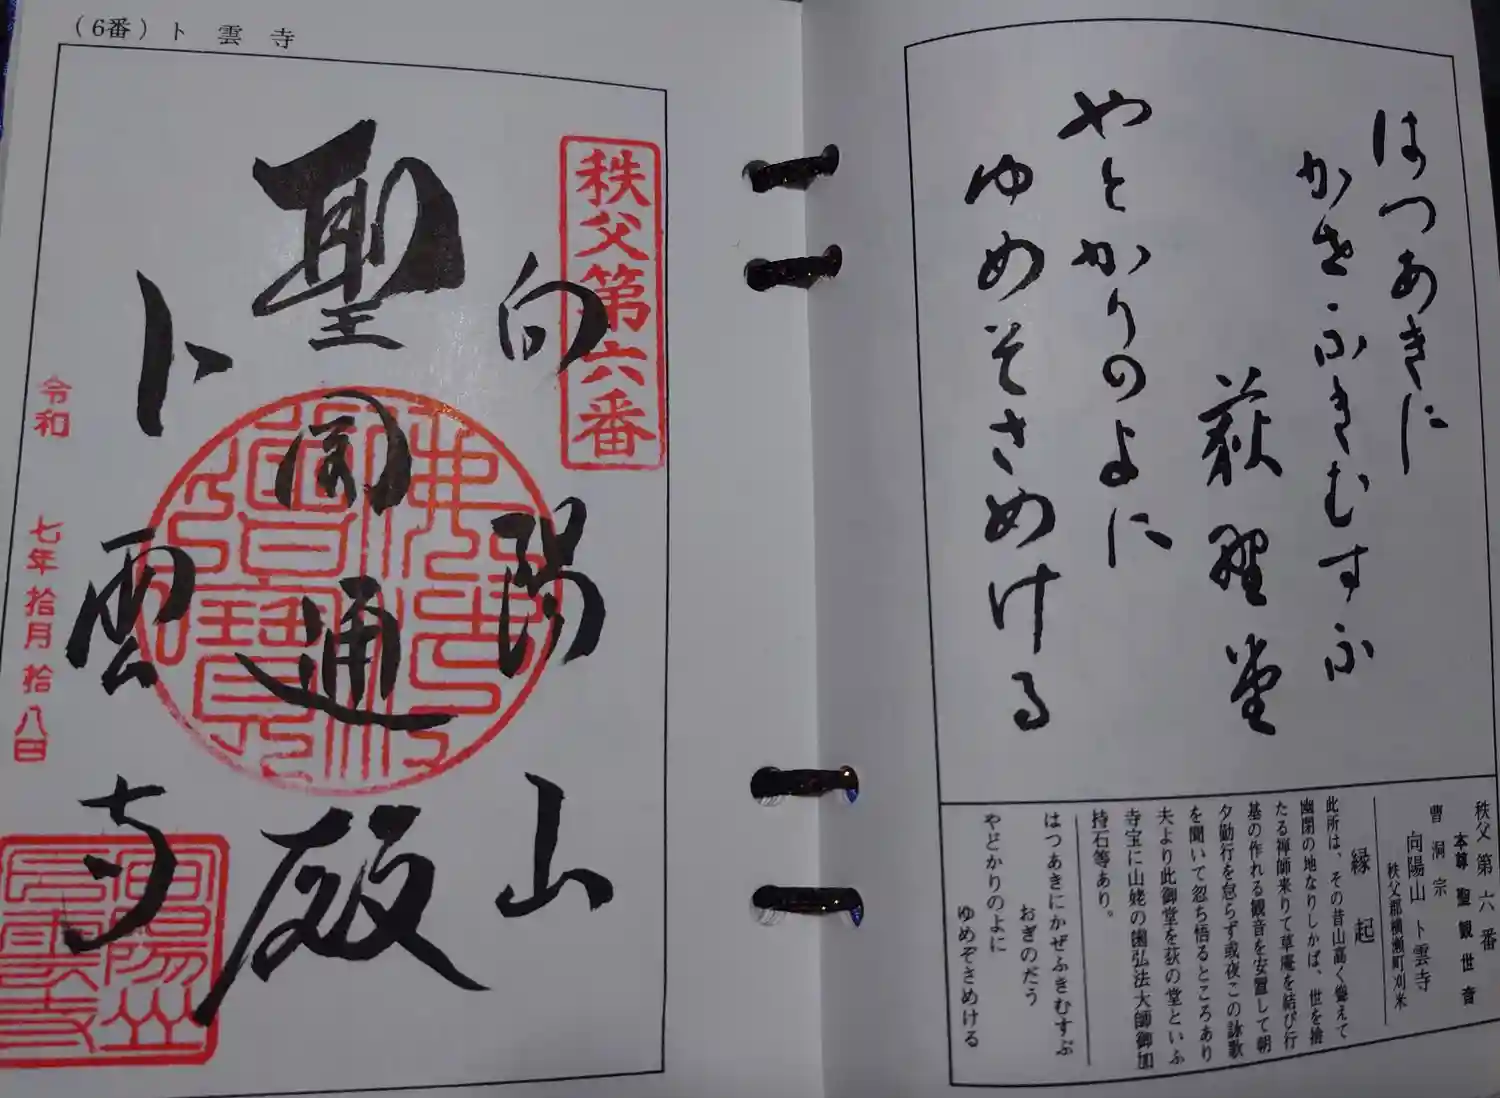 (6番) ト雲寺
秩父第六番
向陽山
聖
圓通
殿
卜雲寺
令和 七年 拾月 拾八日
はつあきに
かせふきむすふ
萩野堂
やとかりのよに
ゆめそさめける
秩父第六番
本尊 聖観世音
曹洞宗
向陽山 ト雲寺
秩父郡横瀬町刈米
縁起
此所は、その昔山高く聳えて
幽閉の地なりしかば、世を捨
たる禅師来りて草庵を結び行
基の作れる観音を安置して朝
夕勤行を怠らず或夜この詠歌
を聞いて忽ち悟るところあり
夫より此御堂を荻の堂といふ
寺宝に山姥の歯弘法大師御加
持石等あり。
はつあきにかぜふきむすぶ
おぎのだう
やどかりのよに
ゆめぞさめける